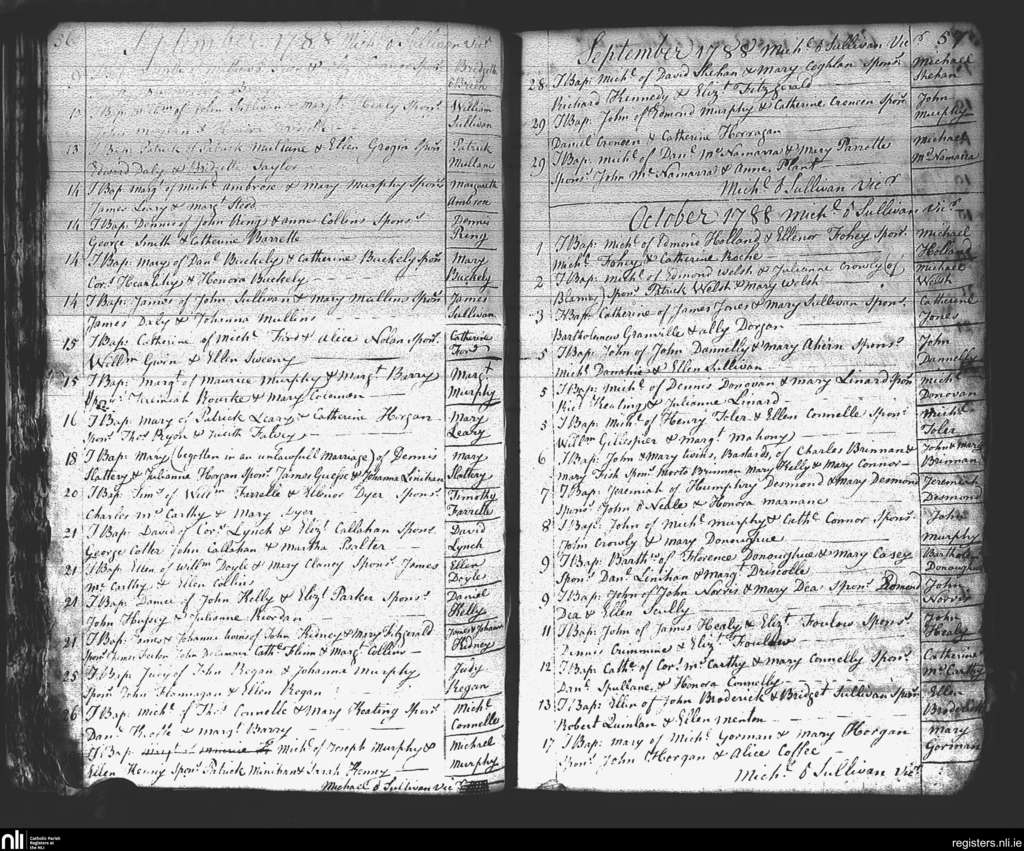 56
September 1788 Mich: O Sullivan Vicr
Bridgett
O Brien
10 I Bap: Willm of John Sullivan & Margt: Sponsrs
William
Sullivan
13 I Bap: Patrick of Patrick Mullane & Ellen Grogin Sponrs
Patrick
Edward Daly & Bridgett Taylor
Mullane
14 I Bap: Margt of Michl Ambrose & Mary Murphy Sponsrs
Margarett
James Leary & Margt Head
Ambrose
14 I Bap: Dennis of John Ring & Anne Collins Sponsrs
Dennis
George Smith & Catherine Barrette
Ring
14 I Bap: Mary of Danl Buckely & Catherine Buckely Sponrs
Mary
Cors: Hearlihy & Honora Buckely
Buckely
14 I Bap: James of John Sullivan & Mary Mullins Sponsrs
James
James Daly & Johanna Mullins
Sullivan
15 I Bap: Catherine of Michl Ford & Alice Nolan Sponrs
Catherine
Willm Gwin & Ellen Sweny
Ford
15 I Bap: Margt of Maurice Murphy & Margt Barry
Margt
Sponrs Jereimiah Rourke & Mary Coleman
Murphy
16 I Bap: Mary of Patrick Leary & Catherine Horgan
Mary
Sponrs Thos Ryon & Judith Falvey
Leary
18 I Bap: Mary (begotten in an unlawfull marriage) of Dennis
Mary
Slattery & Julianne Horgan Sponrs James & Johanna Linihan
Slattery
20 I Bap: Timy of Willm Farrelle & Elenor Dyer Sponsrs
Timothy
Charles Mc Carthy & Mary Dyer
Farrelle
21 I Bap: David of Cors Lynch & Elizt Callahan Sponsrs
David
George Colter John Callahan & Martha Porlter
Lynch
21 I Bap: Ellen of Willm Doyle & Mary Clancy Sponsrs James
Ellen
Mc Carthy & Ellen Collins
Doyle
21 I Bap: Daniel of John Kelly & Elizt Parker Sponsrs
Daniel
John Hussey & Julianne Riordan
Kelly
21 I Bap: James & Johanna twins of John Kidney & Mary Fitzgerald
James & Johana
Sponrs James John Cathe Flinn & Margt Collins
Kidney
25 I Bap: Judy of John Regan & Johanna Murphy
Judy
Sponrs John Flannagan & Ellen Regan
Regan
26 I Bap: Michl of Thos Connelle & Mary Keating Sponrs
Michl
Danl & Margt Barry
Connelle
I Bap: Michl of Joseph Murphy &
Michael
Ellen Henny Sponrs Patrick Minihan & Sarah Kenny
Murphy
Michael O Sullivan Vicr
57
September 1788 Michl: O Sullivan Vicr
28 I Bap: Michl of David Shehan & Mary Coghlan Sponsrs
Michael
Richard Kennedy & Elizt Fitzgerald
Shehan
29 I Bap: John of Edmond Murphy & Catherine Croneen Sponrs
John
Daniel Croneen & Catherine Horragan
Murphy
29 I Bap: Michl of Danl Mc Namarra & Mary Parrotte
Michael
Sponsrs John Mc Namarra & Anne Plant
Mc Namarra
Michl: O Sullivan Vicr
October 1788 Michl: O Sullivan Vicr
1 I Bap: Michl of Edmond Holland & Ellenor Fohey Sponrs
Michael
Michl Fohey & Catherine Roche
Holland
2 I Bap: Michl of Edmond Welsh & Julianne Crowly (of
Michael
Blarney) Sponrs Patrick Welsh & Mary Welsh
Welsh
3 I Bap: Catherine of James Jones & Mary Sullivan Sponsrs
Catherine
Bartholomew Granville & Ally Dorgan
Jones
5 I Bap: John of John Dannelly & Mary Ahern Sponsrs
John
Michl Donahue & Ellen Sullivan
Dannelly
5 I Bap: Michl of Dennis Donovan & Mary Linard Sponrs
Michl
Ricd Keating & Julianne Linard
Donovan
5 I Bap: Michl of Henry Toler & Ellen Connelle Sponsrs
Michl
Willm Gillespier & Margt Mahony
Toler
6 I Bap: John & Mary twins, Bastards, of Charles Brunnan &
John & Mary
Mary Fish Sponrs Morto Brunnan Mary Kelly & Mary Connor
Brunnan
7 I Bap: Jeremiah of Humphry Desmond & Mary Desmond
Jeremiah
Sponsrs John O Neile & Honora Marnane
Desmond
8 I Bap: John of Michl Murphy & Cathe Connor Sponsrs
John
John Crowly & Mary Donoughue
Murphy
9 I Bap: Barthw of Florence Donoughue & Mary Casey
Barthow
Sponsrs Danl Linihan & Margt Driscolle
Donoughue
9 I Bap: John of John Norris & Mary Dea Sponrs Edmond
John
Dea & Ellen Scully
Norris
11 I Bap: John of James Healy & Elizt Foulow Sponsrs
John
Dennis Crummine & Elizt Foulow
Healy
12 I Bap: Cathe of Cors Mc Carthy & Mary Connelly Sponrs
Catherine
Danl Spullane & Honora Connelly
Mc Carthy
13 I Bap: Ellen of John Broderick & Bridget Sullivan Sponrs
Ellen
Robert Quinlan & Ellen Nenton
Broderick
17 I Bap: Mary of Michl Gorman & Mary Horgan
Mary
Sponrs John Horgan & Alice Coffee
Gorman
Michl: O Sullivan Vicr
nli
Catholic Parish
Registers at
the NLI
registers.nli.ie